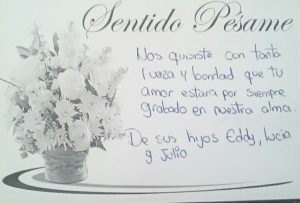 Sentido Pésame
Nos quisiste con tanta
fueza y bondad que tu
amor estara por siempre
grabado en nuestra alma.
De sus hijos Eddy, Lucia
y Julio